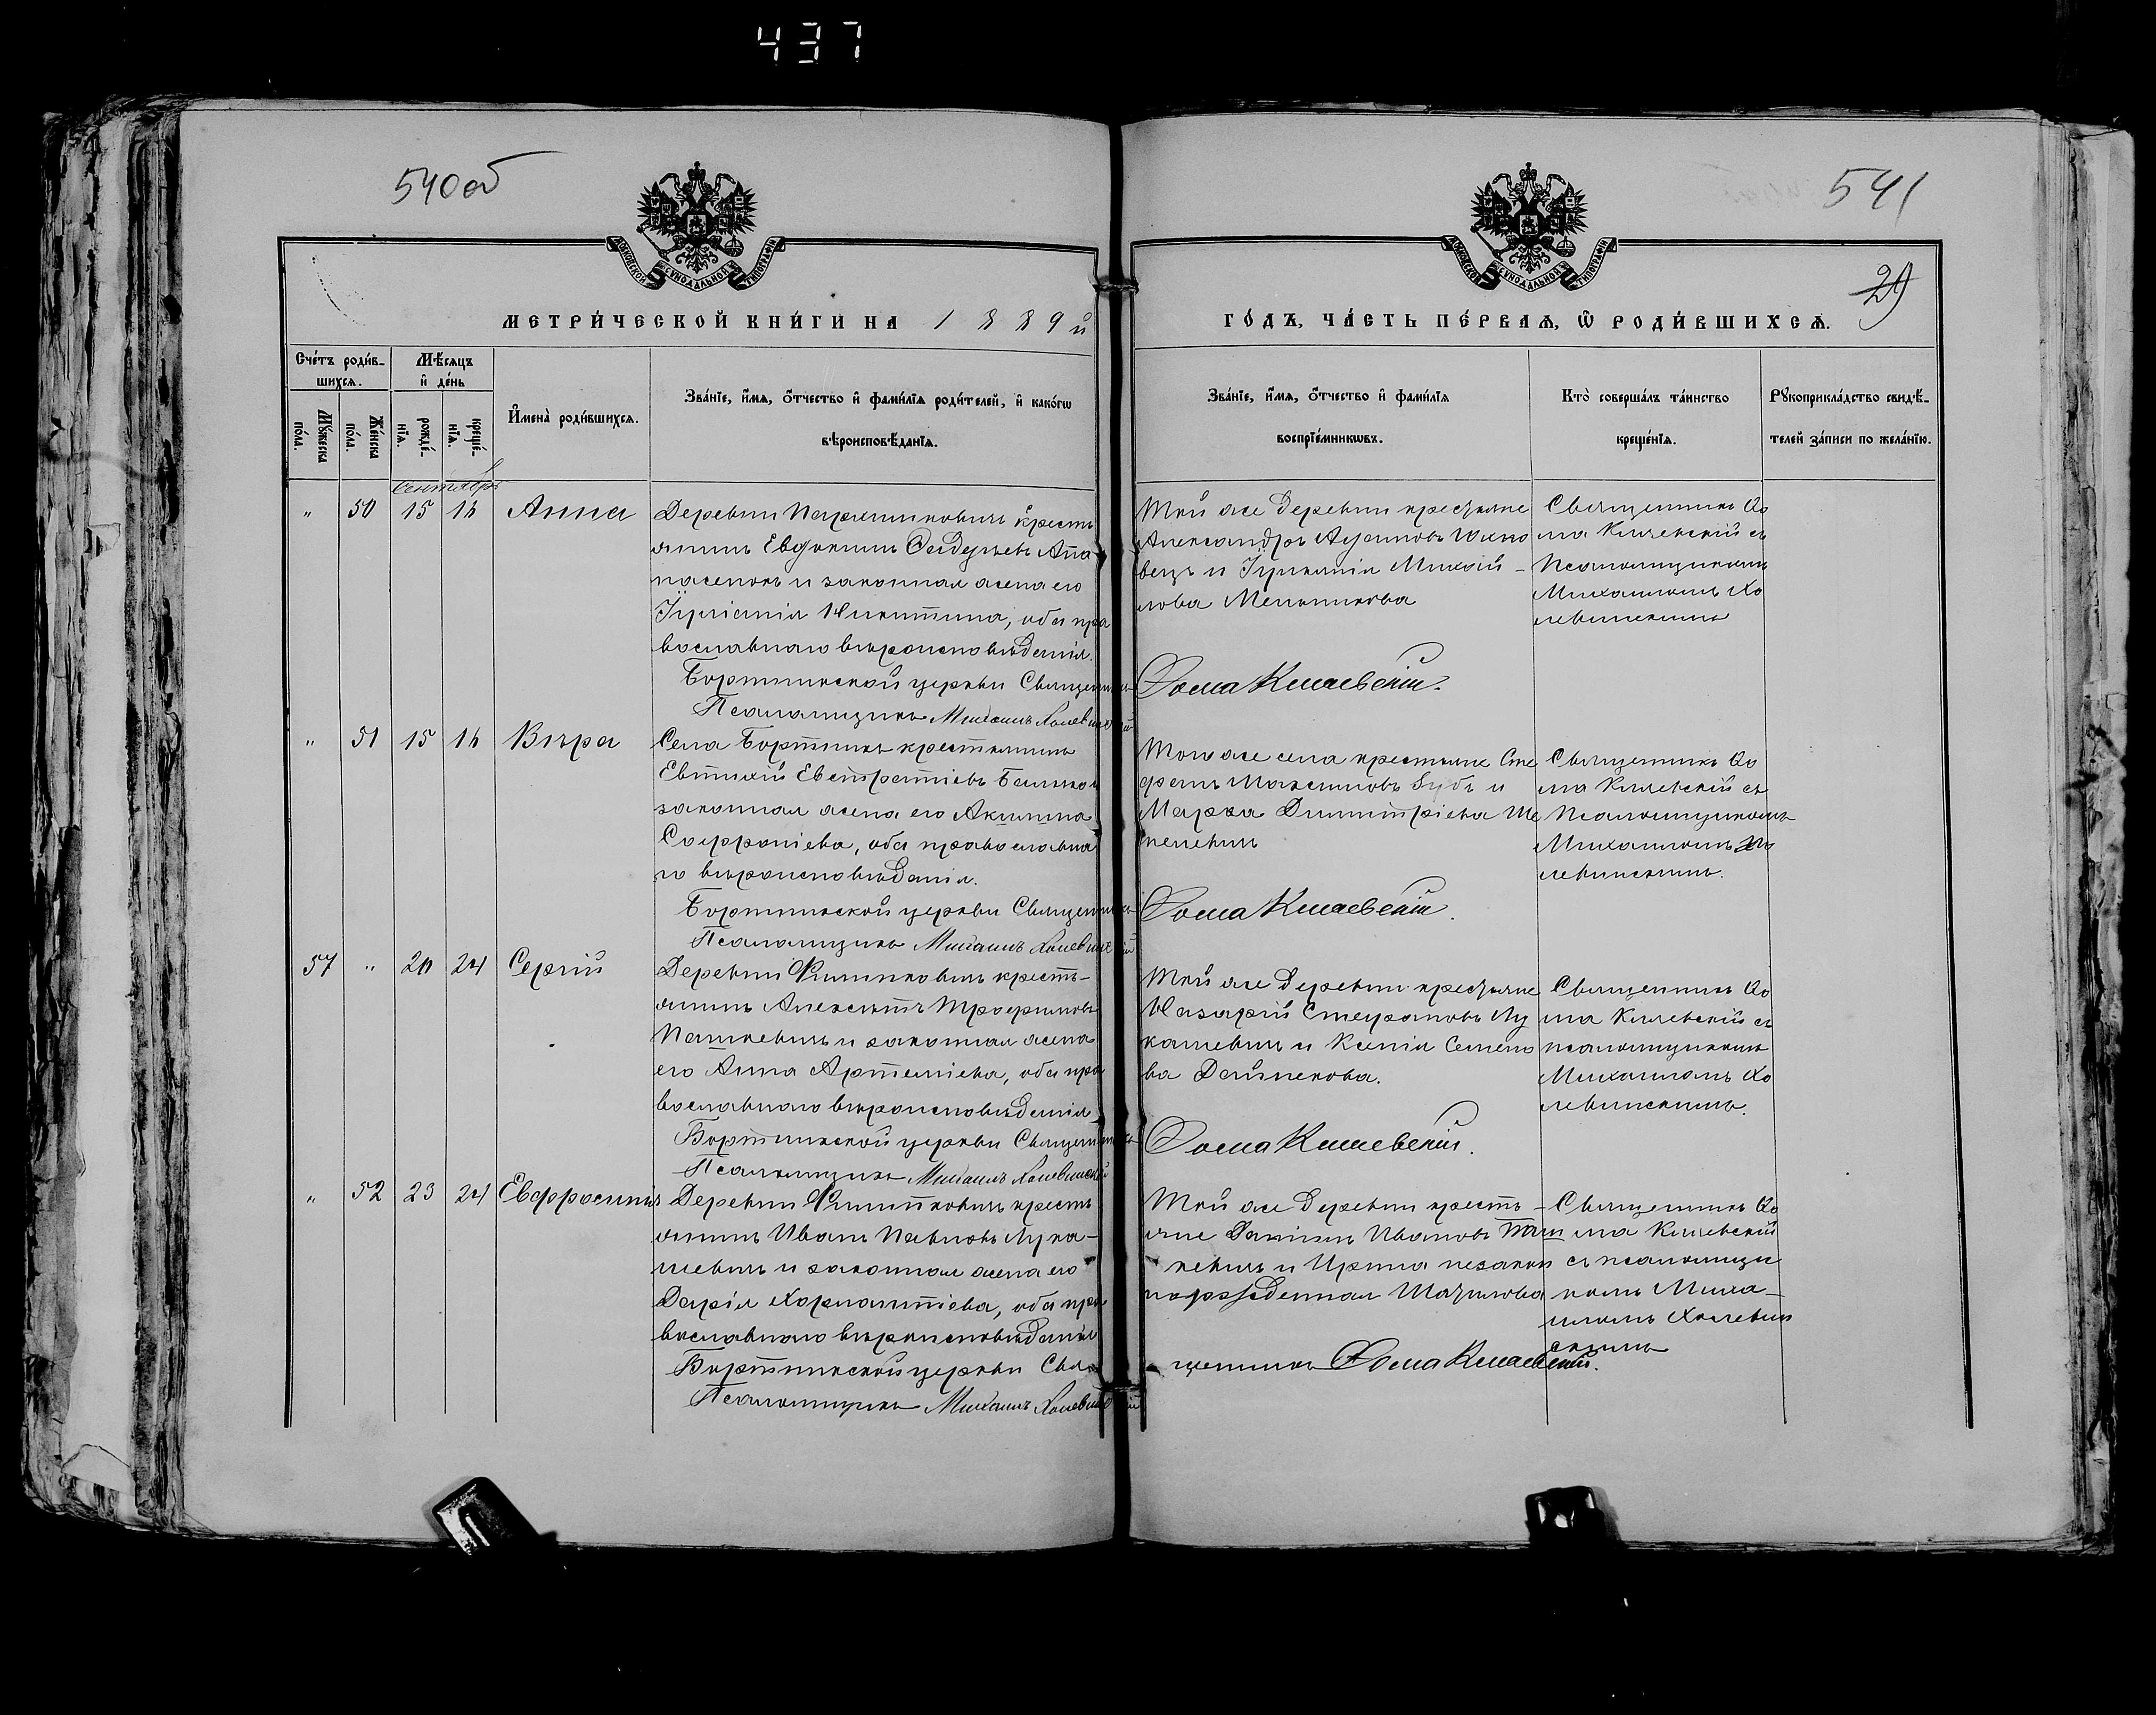 437
540об
541
29
МОСКОВСКОЙ СѴНОДАЛЬНОЙ ТИПОГРАФІИ
МОСКОВСКОЙ СѴНОДАЛЬНОЙ ТИПОГРАФІИ
МЕТРИ́ЧЕСКОЙ КНИ́ГИ НА 1889й
ГО́ДЪ, ЧА́СТЬ ПЕ́РВАѦ, Ѽ РОДИ́ВШИХСѦ.
Сче́тъ роди́в-
шихсѧ.
Мѣ́сѧцъ
и҆ де́нь
Мꙋ́жеска
по́ла.
Же́нска
по́ла.
рожде́-
нїѧ.
креще́-
нїѧ.
И҆мена̀ роди́вшихсѧ.
Зва́нїе, и҆́мѧ, ѻ҆́тчество и҆ фами́лїѧ роди́телей, и҆ како́гѡ
вѣроисповѣ́данїѧ.
Зва́нїе, и҆́мѧ, ѻ҆́тчество и҆ фами́лїѧ
воспрїе́мникѡвъ.
Кто̀ соверша́лъ та́инство
креще́нїѧ.
Рꙋкоприкла́дство свидѣ́-
телей за́писи по жела́нїю.
Сентябрь
" 50 15 16 Анна
Деревни крестъ
янинъ Евдокимъ Апа
насенокъ и законная жена его
Іуліанія Никитина, оба пра
вославнаго вѣроисповѣданія.
Бортникской церкви Священникъ
Псаломщикъ Михаилъ Холевинскій
Той же деревни крестьяне
Александръ Юхно
вецъ и Іуліанія Михай-
лова Мельникова
Ѳома Кишевскій.
Священникъ Ѳо
ма Кишевскій съ
Псаломщикомъ
Михаиломъ Хо
левинскимъ
" 51 15 16 Вѣра
Села Бортникъ крестьянинъ
Евтихій Евстратіевъ и
законная жена его Акилина
Софроніева, оба православна
го вѣроисповѣданія.
Бортникской церкви Священникъ
Псаломщикъ Михаилъ Холевинскій
Того же села крестьяне Сте
фанъ Максимовъ Зубъ и
Марѳа Димитріева Ше
пелевичъ
Ѳома Кишевскій.
Священникъ Ѳо
ма Кишевскій съ
Псаломщикомъ
Михаиломъ Хо
левинскимъ.
57 " 20 24 Сергій
Деревни Филипковичъ кресть-
янинъ Алексѣй Трофимовъ
Пашкевичъ и законная жена
его Анна Артеміева, оба пра
вославнаго вѣроисповѣданія
Бортникской церкви Священникъ
Псаломщикъ Михаилъ Холевинскій
Той же деревни крестьяне
Назарій Стефановъ Лу
кашевичъ и Ксенія Семено
ва Дайнекова.
Ѳома Кишевскій.
Священникъ Ѳо
ма Кишевскій съ
псаломщикомъ
Михаиломъ Хо
левинскимъ.
" 52 23 24 Евфросинія
Деревни Филипковичъ кресть
янинъ Иванъ Павловъ Лука-
шевичъ и законная жена его
Дарія Харлампіева, оба пра
вославнаго вѣроисповѣданія
Бортникской церкви Свя
Псаломщикъ Михаилъ Холевинскій
Той же деревни кресть-
яне Даніилъ Ивановъ Паш
кевичъ и Ирина незакон
норожденная
щенникъ Ѳома Кишевскій.
Священникъ Ѳо
ма Кишевскій
съ псаломщи
комъ Миха-
иломъ Холевин
скимъ